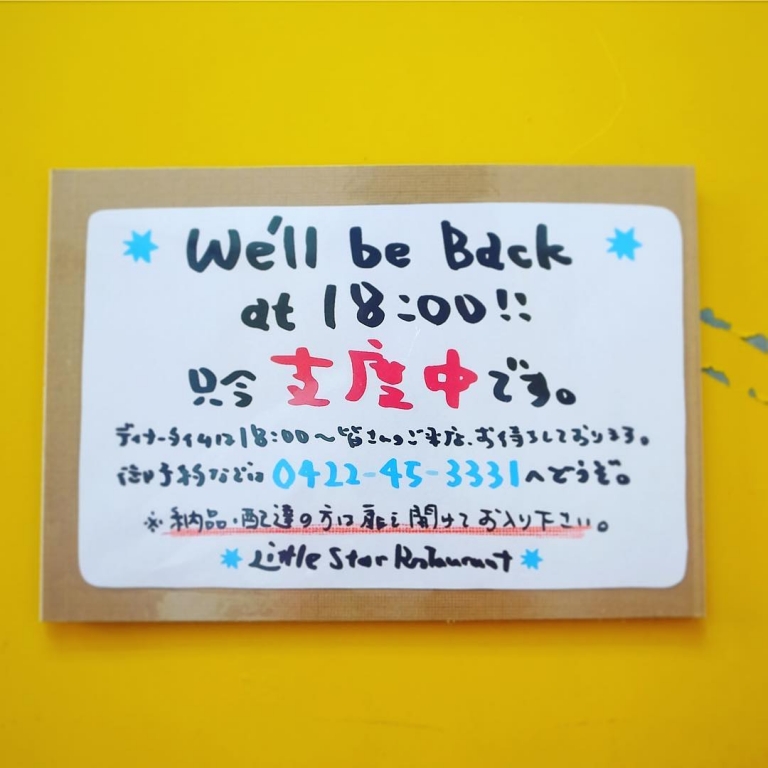 We'll be Back
at 18:00!!
只今 支度中です。
ディナータイムは18:00〜皆さんのご来店、お待ちしております。
御予約などは 0422-45-3331へどうぞ。
※ 納品・配達の方は扉を開けてお入り下さい。
Little Star Restaurant